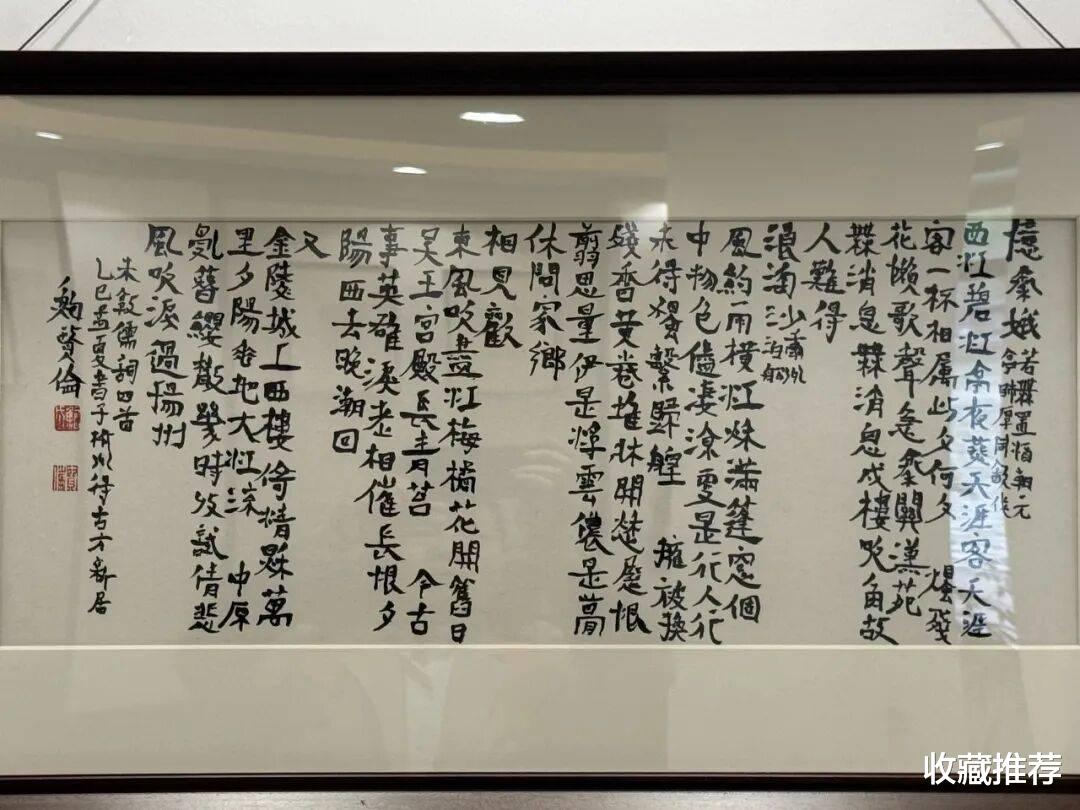 憶秦娥
若無置酒朝元
亭師厚同飲作
西江碧江亭夜燕天涯客天涯
客一杯相屬此夕何夕 爥殘
花嬾歌聲急秦關漢苑
無消息無消息戍樓吹角故
人難得
浪淘沙
康州
泊船
風約雨橫江秋滿篷窗個
中物色儘淒涼更是行人行
未得獨繫歸艎 擁被換
殘香黃卷堆牀開愁展恨
翦思量伊是浮雲儂是夢
休問家鄉
相見歡
東風吹盡江梅橘花開舊日
吳王宮殿長青苔 今古
事英雄淚老相催長恨夕
陽西去晚潮回
又
金陵城上西樓倚清秋萬
里夕陽垂地大江流 中原
亂簪纓散幾時收試倩悲
風吹淚過揚州
朱敦儒詞四首
乙巳孟夏書于杭州得古方新居
賢倫
收藏推荐